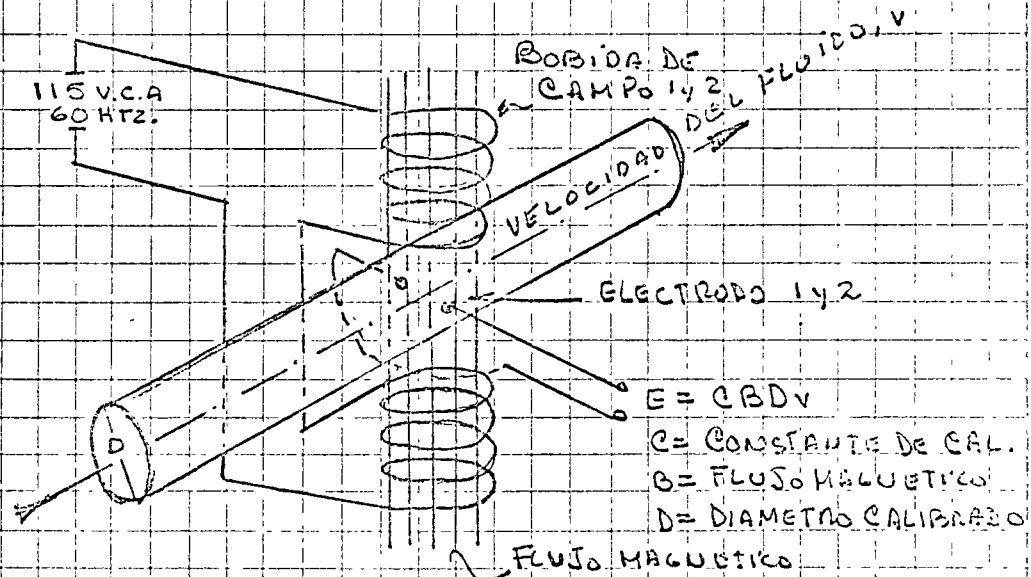 BOBIDA DE
CAMPO 1 y 2
115 V.C.A
60 HTZ.
VELOCIDAD DEL FLUIDO, V
ELECTRODO 1 y 2
D
E = CBDv
C = CONSTANTE DE CAL.
B = FLUJO MAGNETICO
D = DIAMETRO CALIBRADO
FLUJO MAGNETICO